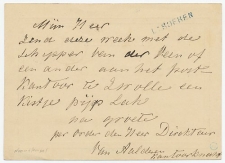 WOERDEN
Mijn Heer
Zend deze week met de
schipper van der Veen of
een ander aan het post
kantoor te Zwolle een
kistje pijp lak
na groete
per order den Heer Direkteur
Van Aalden
Kantoorknecht